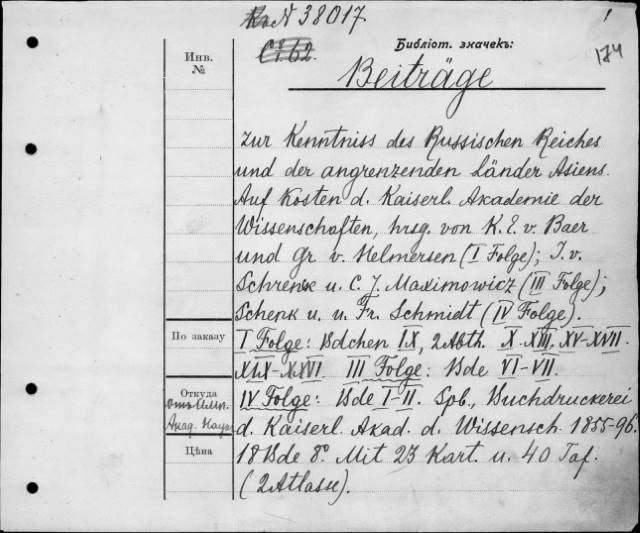 № 38017
1
Ст. 62.
Библіот. значекъ:
174
Инв.
№
Beiträge
zur Kenntniss des Russischen Reiches
und der angrenzenden Länder Asiens.
Auf Kosten d. Kaiserl. Akademie der
Wissenschaften, hrsg. von K. E. v. Baer
und Gr. v. Helmersen (I Folge); I. v.
Schrenk u. C. J. Maximowicz (III Folge);
Schenk u. u. Fr. Schmidt (IV Folge).
По заказу
I Folge: Bdchen IX, 2 Abth. X. XIII. XV-XVII.
XIX-XXVI. III Folge: Bde VI-VII.
Откуда
IV Folge: Bde I-II. Spb., Buchdruckerei
Акад. Наукъ
d. Kaiserl. Akad. d. Wissensch. 1855-96.
Цѣна
18 Bde 8°. Mit 23 Kart. u. 40 Taf.
(2 Atlasse).